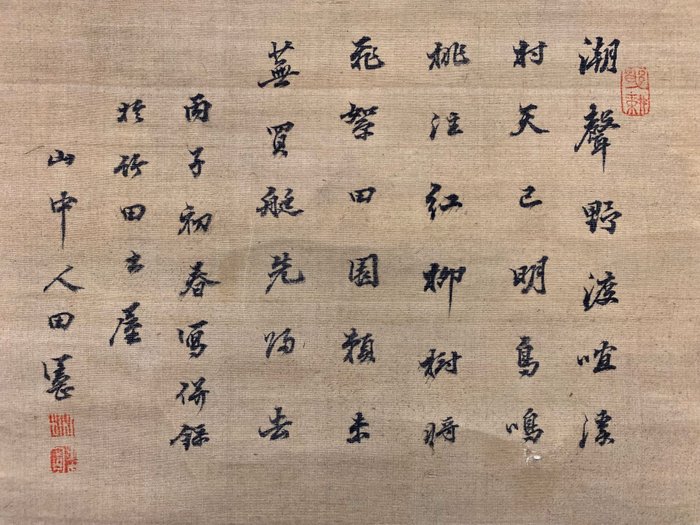 潮聲野渡喧溪
村天已明鳥鳴
桃注紅柳樹將
飛絮田園頼未
蕪買艇先歸去
丙子初春寫併録
於竹田書屋
山中人田憲